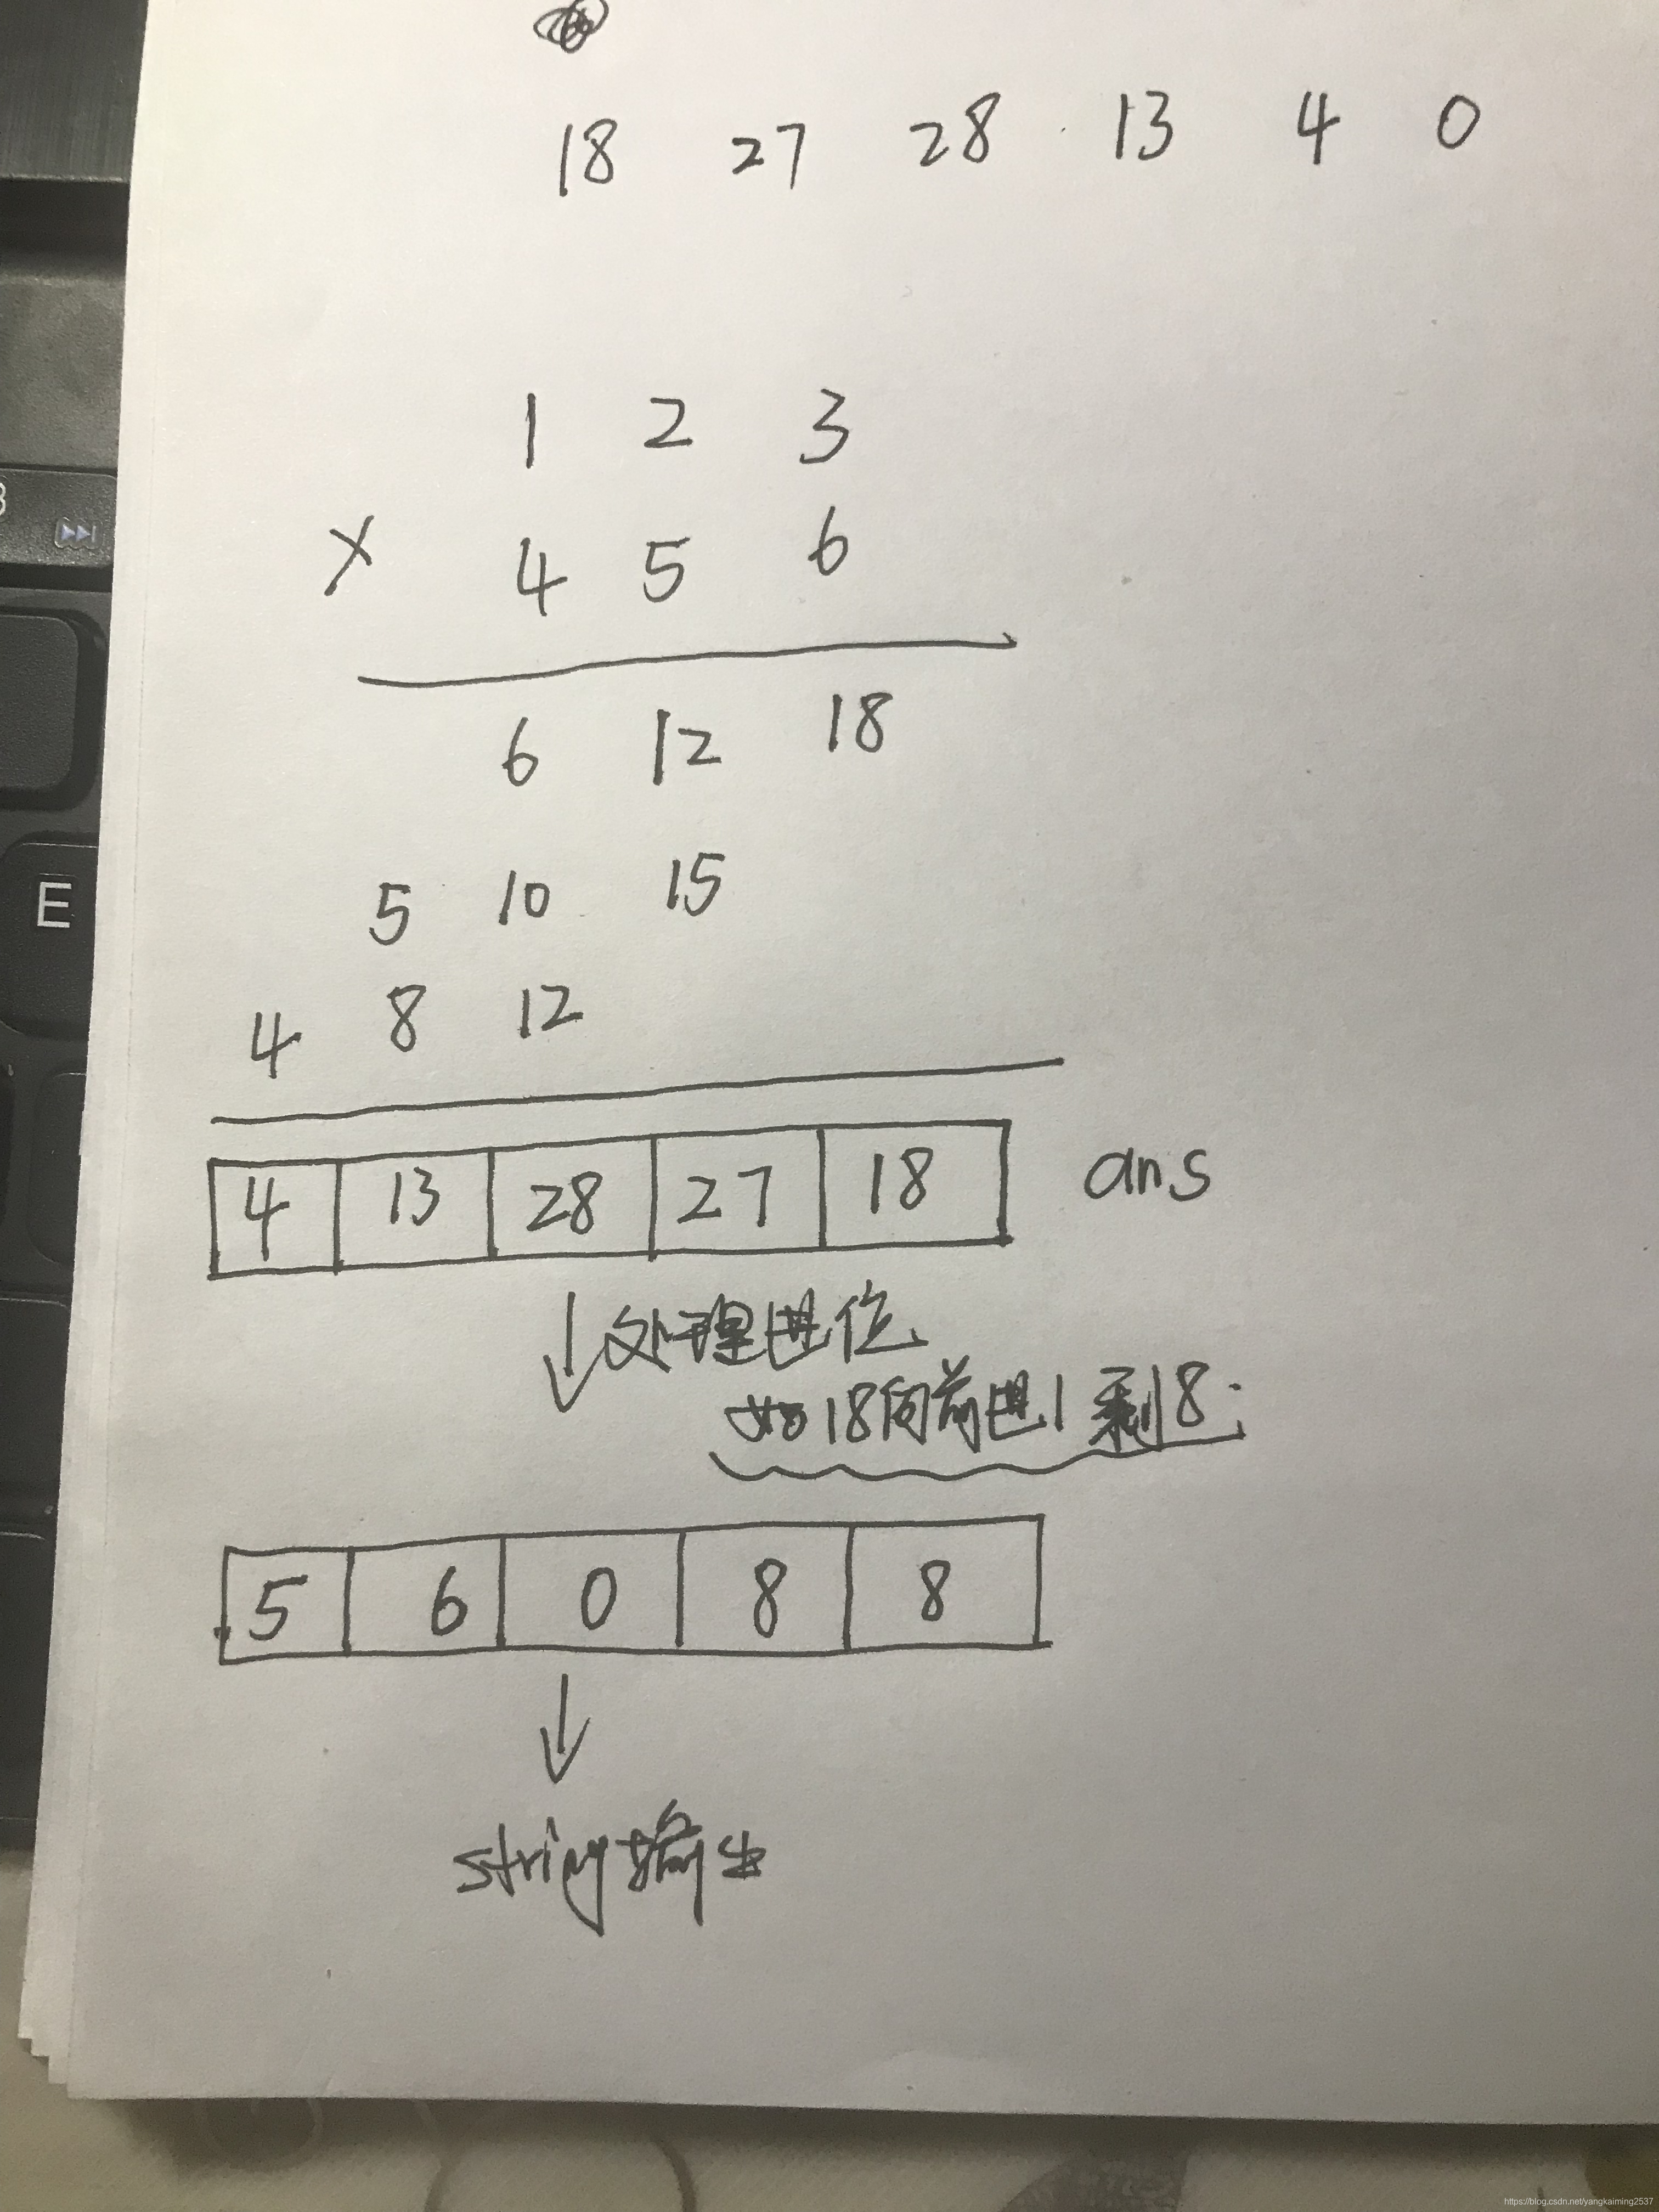 18 27 28 13 4 0
1 2 3
× 4 5 6
6 12 18
5 10 15
4 8 12
4 13 28 27 18 ans
处理进位
如18向前进1剩8;
5 6 0 8 8
string输出
E
https://blog.csdn.net/yangkaiming2537